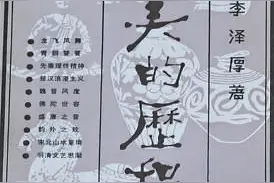 李泽厚著
美的歷程
龙飞凤舞
青铜饕餮
先秦理性精神
楚汉浪漫主义
魏晋风度
佛陀世容
盛唐之音
韵外之致
宋元山水意境
明清文艺思潮